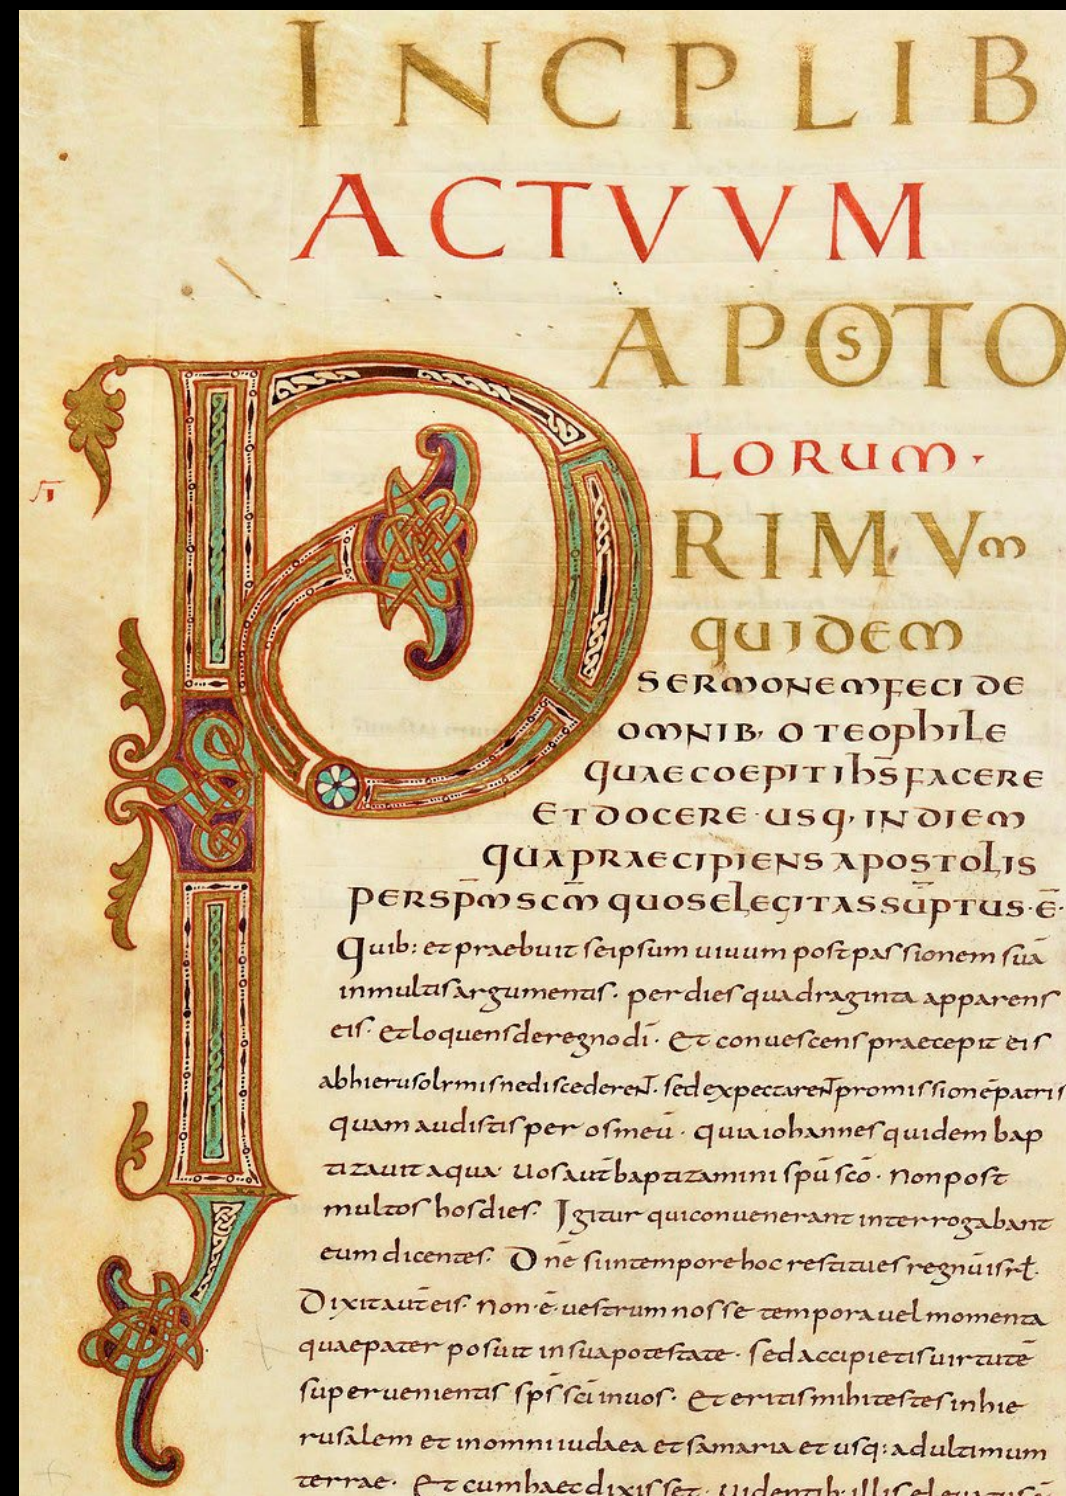 INCP LIB
ACTVVM
APOSTO
LORUM·
PRIMVm
QUIDEM
SERMONEM FECI DE
OMNIB, O TEOPHILE
QUAE COEPIT IHS̅ FACERE
ET DOCERE USQ, IN DIEM
QUA PRAECIPIENS APOSTOLIS
PER SPM̅ SCM̅ QUOS ELEGIT ASSUP̅TUS·E̅·
Quib: et praebuit seipsum uiuum post passionem suā
in multis argumentis· per dies quadraginta apparens
eis· Et loquens de regno dī· Et conuescens praecepit eis
ab hierusolymis ne discederent· sed expectarent promissionē patris
quam audistis per os meū· quia iohannes quidem bap
tizauit aqua· Uos aut̄ baptizamini spū scō· Non post
multos hos dies· Igitur qui conuenerant interrogabant
eum dicentes· Dn̄e si in tempore hoc restitues regnū isrl·
Dixit aut̄ eis· Non·ē·uestrum nosse tempora uel momenta
quae pater posuit in sua potestate· sed accipietis uirtutē
superuenientis sp̄s sc̄i in uos· Et eritis mihi testes in hie
rusalem et in omni iudaea et samaria et usq: ad ultimum
terrae· Et cum haec dixisset· uidentib· illis eleuatus ē